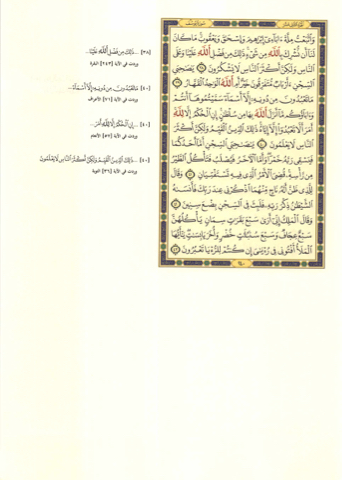 وَٱتَّبَعْتُ مِلَّةَ ءَابَآءِىٓ إِبْرَٰهِيمَ وَإِسْحَٰقَ وَيَعْقُوبَ مَا كَانَ
لَنَآ أَن نُّشْرِكَ بِٱللَّهِ مِن شَىْءٍ ذَٰلِكَ مِن فَضْلِ ٱللَّهِ عَلَيْنَا وَعَلَى
ٱلنَّاسِ وَلَٰكِنَّ أَكْثَرَ ٱلنَّاسِ لَا يَشْكُرُونَ ٣٨ يَٰصَىٰحِبَىِ
ٱلسِّجْنِ ءَأَرْبَابٌ مُّتَفَرِّقُونَ خَيْرٌ أَمِ ٱللَّهُ ٱلْوَٰحِدُ ٱلْقَهَّارُ ٣٩
مَا تَعْبُدُونَ مِن دُونِهِۦٓ إِلَّآ أَسْمَآءً سَمَّيْتُمُوهَآ أَنتُمْ
وَءَابَآؤُكُم مَّآ أَنزَلَ ٱللَّهُ بِهَا مِن سُلْطَٰنٍ إِنِ ٱلْحُكْمُ إِلَّا لِلَّهِ
أَمَرَ أَلَّا تَعْبُدُوٓا۟ إِلَّآ إِيَّاهُ ذَٰلِكَ ٱلدِّينُ ٱلْقَيِّمُ وَلَٰكِنَّ أَكْثَرَ
ٱلنَّاسِ لَا يَعْلَمُونَ ٤٠ يَٰصَىٰحِبَىِ ٱلسِّجْنِ أَمَّآ أَحَدُكُمَا
فَيَسْقِى رَبَّهُۥ خَمْرًا وَأَمَّا ٱلْءَاخَرُ فَيُصْلَبُ فَتَأْكُلُ ٱلطَّيْرُ
مِن رَّأْسِهِۦ قُضِىَ ٱلْأَمْرُ ٱلَّذِى فِيهِ تَسْتَفْتِيَانِ ٤١ وَقَالَ
لِلَّذِى ظَنَّ أَنَّهُۥ نَاجٍ مِّنْهُمَا ٱذْكُرْنِى عِندَ رَبِّكَ فَأَنسَىٰهُ
ٱلشَّيْطَٰنُ ذِكْرَ رَبِّهِۦ فَلَبِثَ فِى ٱلسِّجْنِ بِضْعَ سِنِينَ ٤٢
وَقَالَ ٱلْمَلِكُ إِنِّىٓ أَرَىٰ سَبْعَ بَقَرَٰتٍ سِمَانٍ يَأْكُلُهُنَّ
سَبْعٌ عِجَافٌ وَسَبْعَ سُنۢبُلَٰتٍ خُضْرٍ وَأُخَرَ يَابِسَٰتٍ يَٰٓأَيُّهَا
ٱلْمَلَأُ أَفْتُونِى فِى رُءْيَٰىَ إِن كُنتُمْ لِلرُّءْيَا تَعْبُرُونَ ٤٣
[٣٨] ...ذَلِكَ مِن فَضْلِ ٱللَّهِ عَلَيْنَا...
وردت في الآية [٢٤٣] البقرة
[٤٠] مَا تَعْبُدُونَ مِن دُونِهِ إِلَّا أَسْمَاءً...
وردت في الآية [٧١] الأعراف
[٤٠] ...إِنِ ٱلْحُكْمُ إِلَّا لِلَّهِ أَمَرَ...
وردت في الآية [٥٧] الأنعام
[٤٠] ...ذَلِكَ ٱلدِّينُ ٱلْقَيِّمُ وَلَكِنَّ أَكْثَرَ ٱلنَّاسِ لَا يَعْلَمُونَ
وردت في الآية [٣٦] التوبة